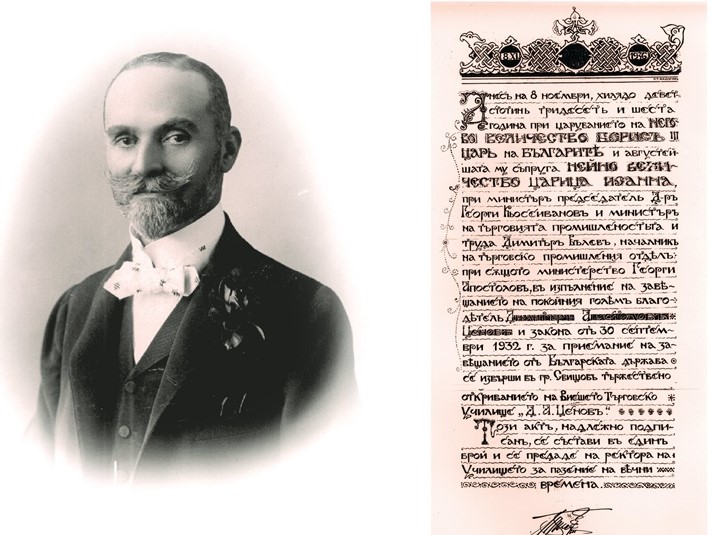 8 XI 1936
Днесь на 8 ноември, хилядо девет-
стотинь тридесеть и шеста
година при царуването на Него-
во Величество Борисъ III
Царь на Българитѣ и августей-
шата му съпруга Нейно Вели-
чество Царица Иоанна,
при министъръ председатель Д-ръ
Георги Кьосеивановъ и министъръ
на търговията промишленостьта и
труда Димитъръ Вълевъ, началникъ
на търговско промишления отдѣлъ
при сѫщото министерство Георги
Апостоловъ, въ изпълнение на завѣ-
щанието на покойния големъ благо-
дѣтель Димитъръ Апостоловичъ
Ценовъ и закона отъ 30 септем-
ври 1932 г. за приемание на за-
вѣщанието отъ Българската държава
се извърши въ гр. Свищовъ тържествено
откриванието на Висшето Търговско
Училище „Д. А. Ценовъ."
Този актъ, надлежно подпи-
санъ, се състави въ единъ
брой и се предаде на ректора на
Училището за пазение на вѣчни
времена.